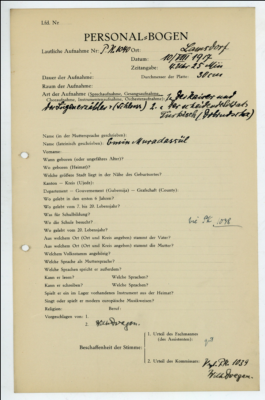 Lfd. Nr.
PERSONAL-BOGEN
Lautliche Aufnahme Nr.: P.K. 1040 Ort: Lamsdorf
Datum: 10/VIII 1917
Zeitangabe: 4 Uhr 25 Min
Dauer der Aufnahme: Durchmesser der Platte: 30 cm
Raum der Aufnahme:
Art der Aufnahme (Sprechaufnahme, Gesangsaufnahme,
Choraufnahme, Instrumentenaufnahme, Orchesteraufnahme): 1. Der Kaiser und
der 2. Der
Türkisch (Dobrudscha)
Name (in der Muttersprache geschrieben):
Name (lateinisch geschrieben): Emin
Vorname:
Wann geboren (oder ungefähres Alter)?
Wo geboren (Heimat)?
Welche größere Stadt liegt in der Nähe des Geburtsortes?
Kanton – Kreis (Ujedz):
Departement – Gouvernement (Gubernija) – Grafschaft (County):
Wo gelebt in den ersten 6 Jahren?
Wo gelebt vom 7. bis 20. Lebensjahr?
Was für Schulbildung?
Wo die Schule besucht?
Wo gelebt vom 20. Lebensjahr?
Aus welchem Ort (Ort und Kreis angeben) stammt der Vater?
Aus welchem Ort (Ort und Kreis angeben) stammt die Mutter?
Welchem Volksstamm angehörig?
Welche Sprache als Muttersprache?
Welche Sprachen spricht er außerdem?
Kann er lesen? Welche Sprachen?
Kann er schreiben? Welche Sprachen?
Spielt er ein im Lager vorhandenes Instrument aus der Heimat?
Singt oder spielt er moderne europäische Musikweisen?
Religion: Beruf:
Vorgeschlagen von: 1.
2.
Beschaffenheit der Stimme:
1. Urteil des Fachmannes
(des Assistenten):
2. Urteil des Kommissars: